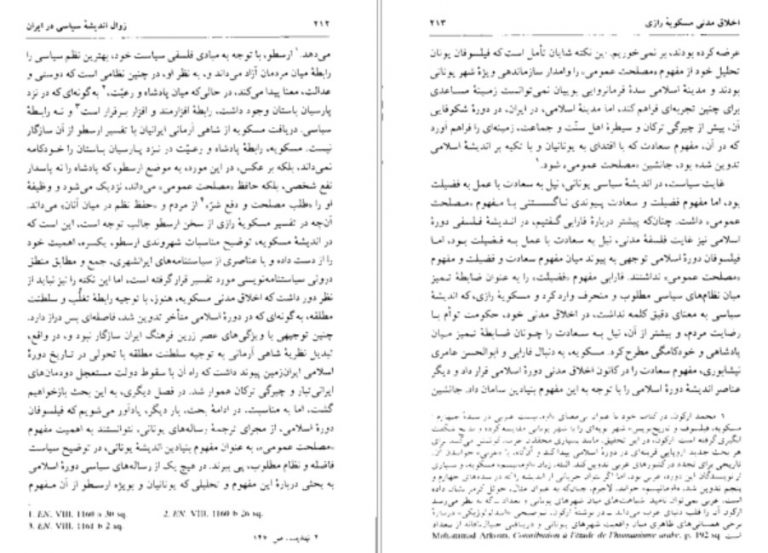 ۲۱۲ زوال اندیشهٔ سیاسی در ایران
می‌دهد.۱ ارسطو، با توجه به مبادی فلسفی سیاست خود، بهترین نظم سیاسی را
رابطهٔ میان مردمان آزاد می‌داند و، به نظر او، در چنین نظامی است که دوستی و
عدالت، معنا پیدا می‌کند، در حالی‌که میان پادشاه و رعیّت،۲ به‌گونه‌ای که در نزد
پارسیان باستان وجود داشت، رابطهٔ افزارمند و افزار برقرار است۳ و نه رابطهٔ
سیاسی. دریافت مسکویه از شاهی آرمانی ایرانیان با تفسیر ارسطو از آن سازگار
نیست. مسکویه، رابطهٔ پادشاه و رعیّت در نزد پارسیان باستان را خودکامه
نمی‌داند، بلکه بر عکس، در این مورد، به موضع ارسطو، که پادشاه را نه پاسدار
نفع شخصی، بلکه حافظ «مصلحت عمومی» می‌داند، نزدیک می‌شود و وظیفهٔ
او را «طلب مصلحت و دفع شرّ»۴ از مردم و «حفظ نظم در میان آنان» می‌داند.
آن‌چه در تفسیر مسکویهٔ رازی از سخن ارسطو جالب توجه است، این است که
در اندیشهٔ مسکویه، توضیح مناسبات شهروندی ارسطو، یکسره، اهمیت خود
را از دست داده و با عناصری از سیاستنامه‌های ایرانشهری، جمع و مطابق منطق
درونی سیاستنامه‌نویسی مورد تفسیر قرار گرفته است، اما این نکته را نیز نباید از
نظر دور داشت که اخلاق مدنی مسکویه، هنوز، با توجیه رابطهٔ تغلُّب و سلطنت
مطلقه، به‌گونه‌ای که در دورهٔ اسلامی متأخر تدوین شد، فاصله‌ای پس دراز دارد.
چنین توجیهی با ویژگی‌های عصر زرین فرهنگ ایران سازگار نبود و، در واقع،
تبدیل نظریهٔ شاهی آرمانی به توجیه سلطنت مطلقه با تحولی در تاریخ دورهٔ
اسلامی ایران‌زمین پیوند داشت که راه آن با سقوط دولت مستعجل دودمان‌های
ایرانی‌تبار و چیرگی ترکان هموار شد. در فصل دیگری، به این بحث بازخواهیم
گشت، اما به مناسبت، در ادامهٔ بحث، بار دیگر، یادآور می‌شویم که فیلسوفان
دورهٔ اسلامی، از مجرای ترجمهٔ رساله‌های یونانی، نتوانستند به اهمیت مفهوم
«مصلحت عمومی»، به عنوان مفهوم بنیادین اندیشهٔ یونانی، در توضیح سیاست
فاضله و نظام مطلوب، پی ببرند. در هیچ یک از رساله‌های سیاسی دورهٔ اسلامی
به بحثی دربارهٔ این مفهوم و تحلیلی که یونانیان و بویژه ارسطو از آن مفهوم
1. EN. VIII. 1160 a 30 sq. 2. EN. VIII. 1160 b 26 sq.
3. EN. VIII. 1161 b 2 sq.
اخلاق مدنی مسکویهٔ رازی ۲۱۳
عرضه کرده بودند، بر نمی‌خوریم. این نکته شایان تأمل است که فیلسوفان یونان
تحلیل خود از مفهوم «مصلحت عمومی» را وامدار سازماندهی ویژهٔ شهر یونانی
بودند و مدینهٔ اسلامی سدهٔ فرمانروایی بوییان نمی‌توانست زمینهٔ مساعدی
برای چنین تجربه‌ای فراهم کند، اما مدینهٔ اسلامی، در ایران، در دورهٔ شکوفایی
آن، پیش از چیرگی ترکان و سیطرهٔ اهل سنّت و جماعت، زمینه‌ای را فراهم آورد
که در آن، مفهوم سعادت که با اقتدای به یونانیان و با تکیه بر اندیشهٔ اسلامی
تدوین شده بود، جانشین «مصلحت عمومی» شود.۱
غایت سیاست، در اندیشهٔ سیاسی یونانی، نیل به سعادت با عمل به فضیلت
بود، اما مفهوم فضیلت و سعادت پیوندی ناگسستنی با مفهوم «مصلحت
عمومی» داشت. چنان‌که پیشتر دربارهٔ فارابی گفتیم، در اندیشهٔ فلسفی دورهٔ
اسلامی نیز غایت فلسفهٔ مدنی، نیل به سعادت با عمل به فضیلت بود، اما
فیلسوفان دورهٔ اسلامی توجهی به پیوند میان مفهوم سعادت و فضیلت و مفهوم
«مصلحت عمومی» نداشتند. فارابی مفهوم «فضیلت» را به عنوان ضابطهٔ تمیز
میان نظام‌های سیاسی مطلوب و منحرف وارد کرد و مسکویهٔ رازی، که اندیشهٔ
سیاسی به معنای دقیق کلمه نداشت، در اخلاق مدنی خود، حکومت توأم با
رضایت مردم، و بیشتر از آن، نیل به سعادت را چونان ضابطهٔ تمیز میان
پادشاهی و خودکامگی مطرح کرد. مسکویه، به دنبال فارابی و ابوالحسن عامری
نیشابوری، مفهوم سعادت را در کانون اخلاق مدنی دورهٔ اسلامی قرار داد و دیگر
عناصر اندیشهٔ دورهٔ اسلامی را با توجه به این مفهوم بنیادین سامان داد. جانشین
۱ محمد ارکون، در کتاب خود با عنوان
Mohammad Arkoun, Contribution à l'étude de l'humanisme arabe, p. 192 sq